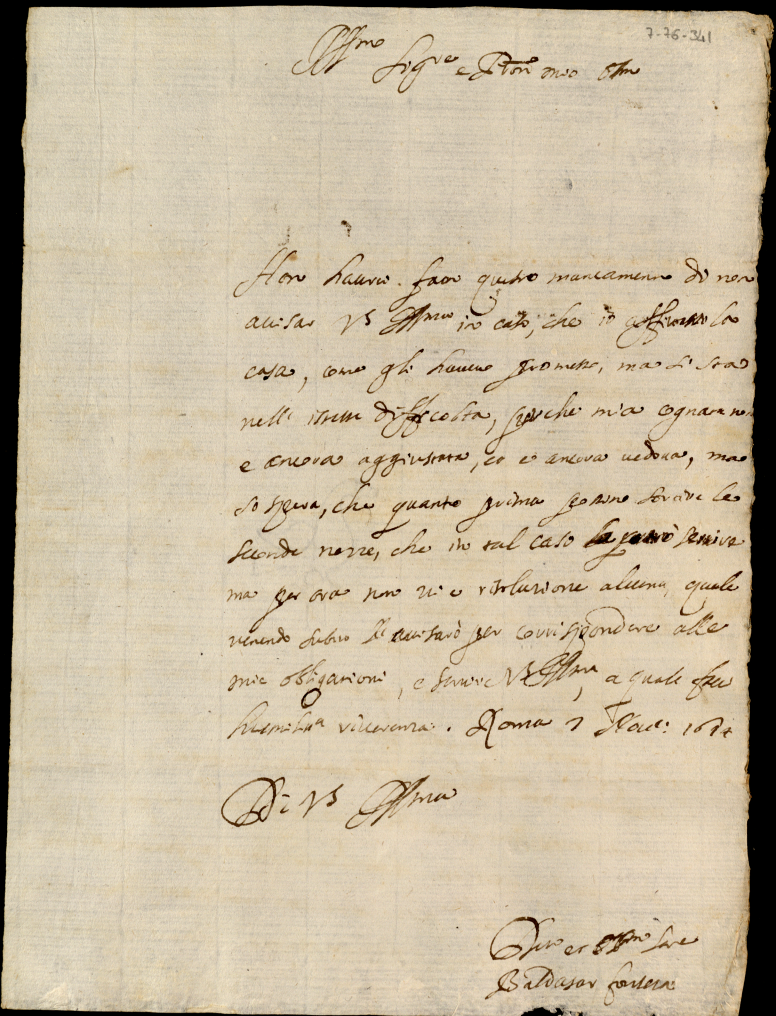 7-76-341
Illmo Sigre e Pron mio Ossmo
Non haurei fatto questo mancamento di non
avisar VS Illma in caso, che io affittassi la
casa, come gli haveva promesso, ma si sta
nell' istesse difficoltà, perche mia cognata non
e ancora aggiustata, et e ancora vedova, ma
si spera, che quanto prima possino le
seconde nozze, che in tal caso la potrò servire
ma per ora non vi e risolutione alcuna, quale
venendo subito l'avisarò per corrispondere alle
mie obligationi, e servire VS Illma, a quale fo
humilissa riverenza. Roma
Di VS Illma
Devo et Obbmo Sere
Baldasar